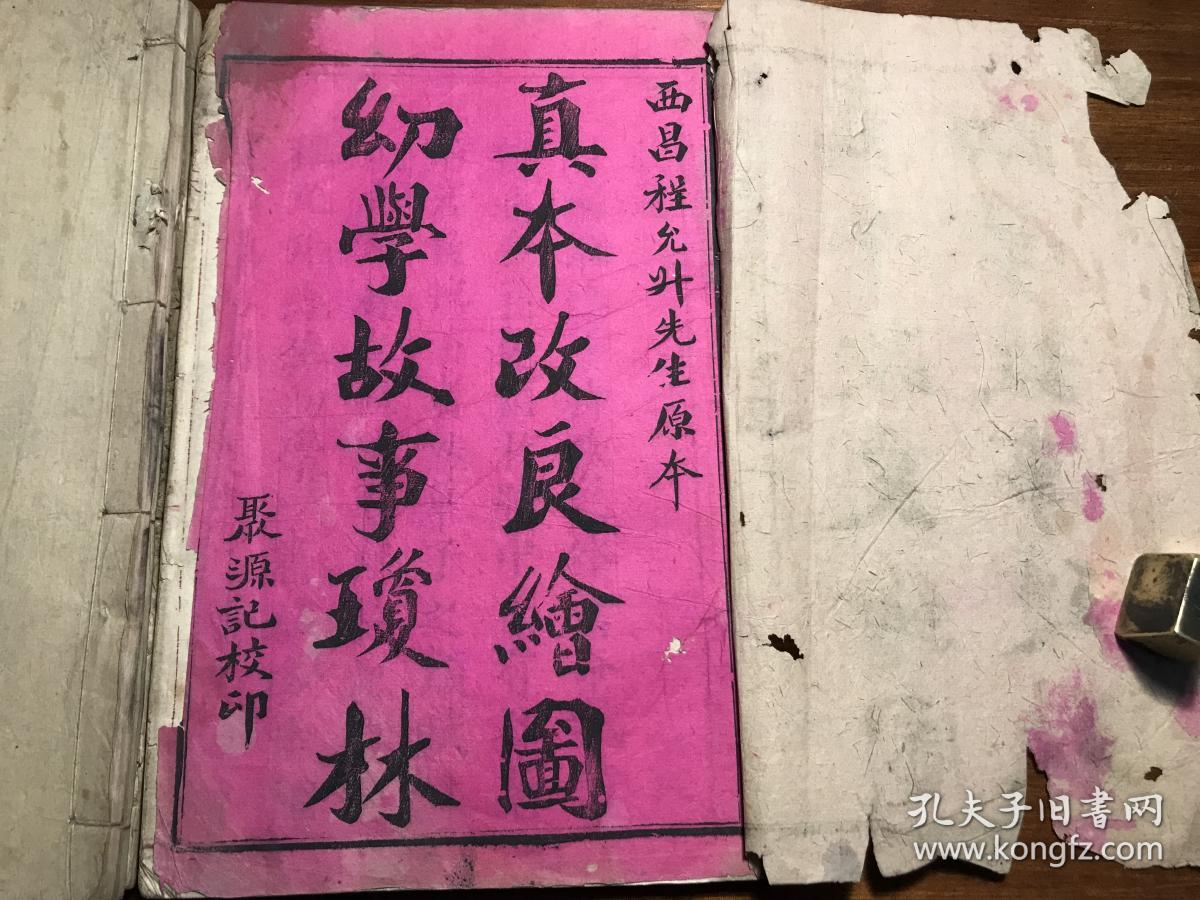 西昌程允升先生原本
真本改良繪圖
幼學故事瓊林
聚源記校印
孔夫子旧书网
www.kongfz.com